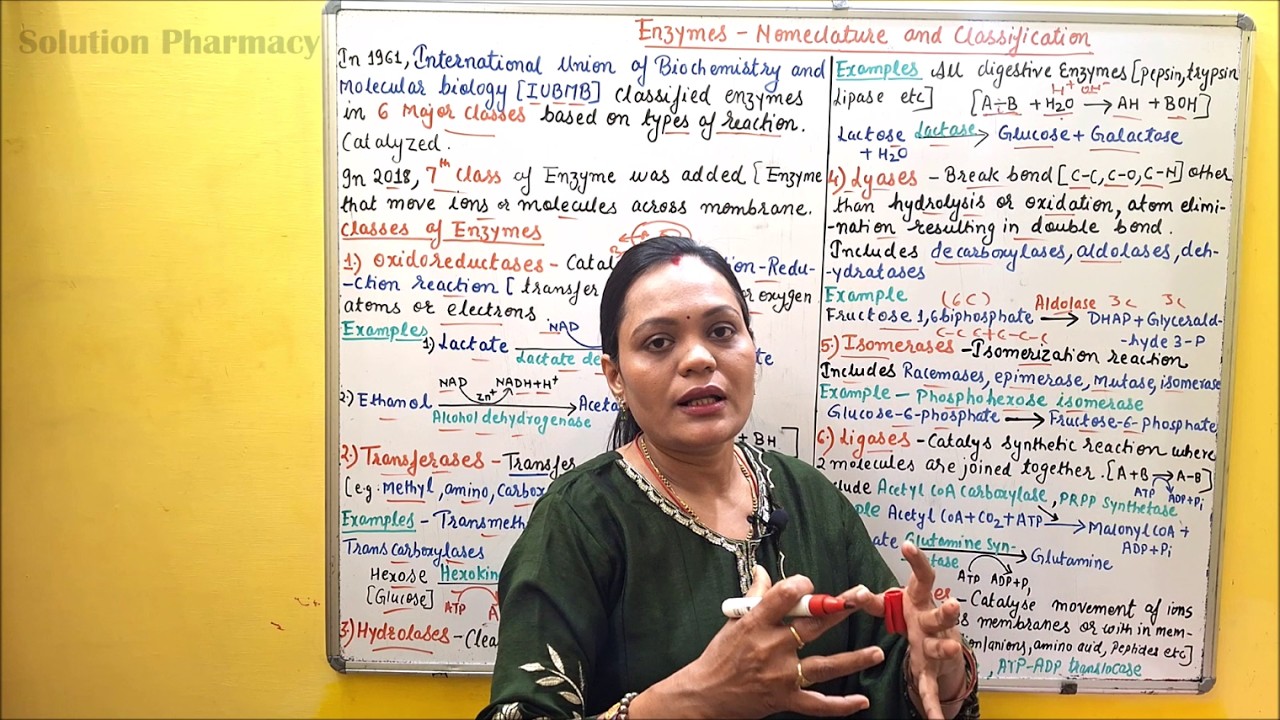 Solution Pharmacy
Enzymes - Nomeclature and Classification
In 1961, International Union of Biochemistry and
Molecular biology [IUBMB] classified enzymes
in 6 Major classes based on types of reaction.
Catalyzed.
In 2018, 7th class of Enzyme was added [Enzyme
that move ions or molecules across membrane.
Classes of Enzymes
1) Oxidoreductases - Catal
ion-Redu-
-ction reaction [ transfer
or oxygen
atoms or electrons
Examples
NAD
1) Lactate
Lactate de
te
NAD NADH+H+
Zn+
2) Ethanol → Aceta
Alcohol dehydrogenase
+ BH ]
2.) Transferases - Transfer
[e.g. methyl, amino, carbox
Examples - Transmeth
Transcarboxylases
Hexose Hexokin
[Glucose]
ATP A
3.) Hydrolases - Clea
Examples All digestive Enzymes [pepsin, trypsin
H+ OH-
Lipase etc] [A-B + H2O → AH + BOH]
Lactose Lactase → Glucose + Galactose
+ H2O
4.) Lyases - Break bond [C-C, C-O, C-N] other
than hydrolysis or oxidation, atom elimi-
-nation resulting in double bond.
Includes decarboxylases, aldolases, deh-
-ydratases
Example (6C) Aldolase 3c 3c
Fructose 1,6 biphosphate → DHAP + Glycerald-
-hyde 3-P
C-C-C+C-C-C
5.) Isomerases - Isomerization reaction
Includes Racemases, epimerase, Mutase, isomerase
Example - Phosphohexose isomerase
Glucose-6-phosphate → Fructose-6-Phosphate
6.) Ligases - Catalys synthetic reaction where
2 molecules are joined together. [A+B → A-B]
ATP ADP+Pi
clude Acetyl CoA carboxylase, PRPP Synthetase
ple Acetyl CoA + CO2 + ATP → Malonyl CoA +
ADP+Pi
ate Glutamine Syn- → Glutamine
tase
ATP ADP+Pi
es - Catalyse movement of ions
ss membranes or with in mem-
ion/anions, amino acid, Peptides etc]
, ATP-ADP translocase